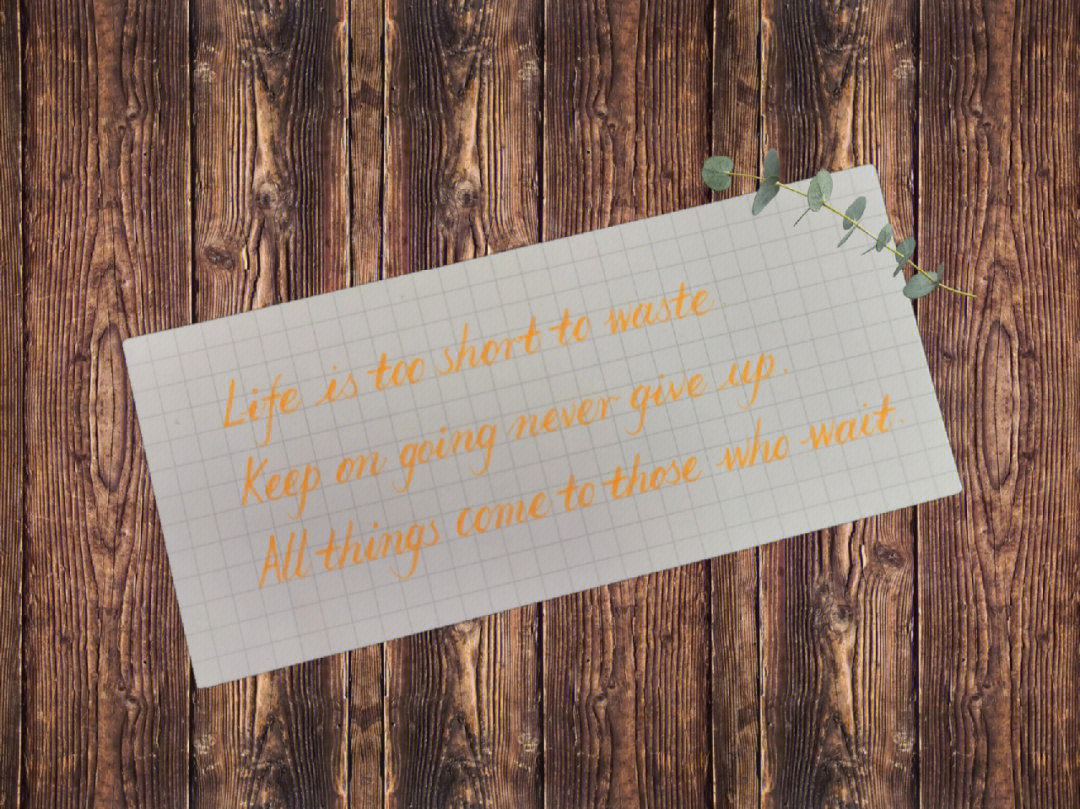 Life is too short to waste
Keep on going never give up.
All things come to those who wait.